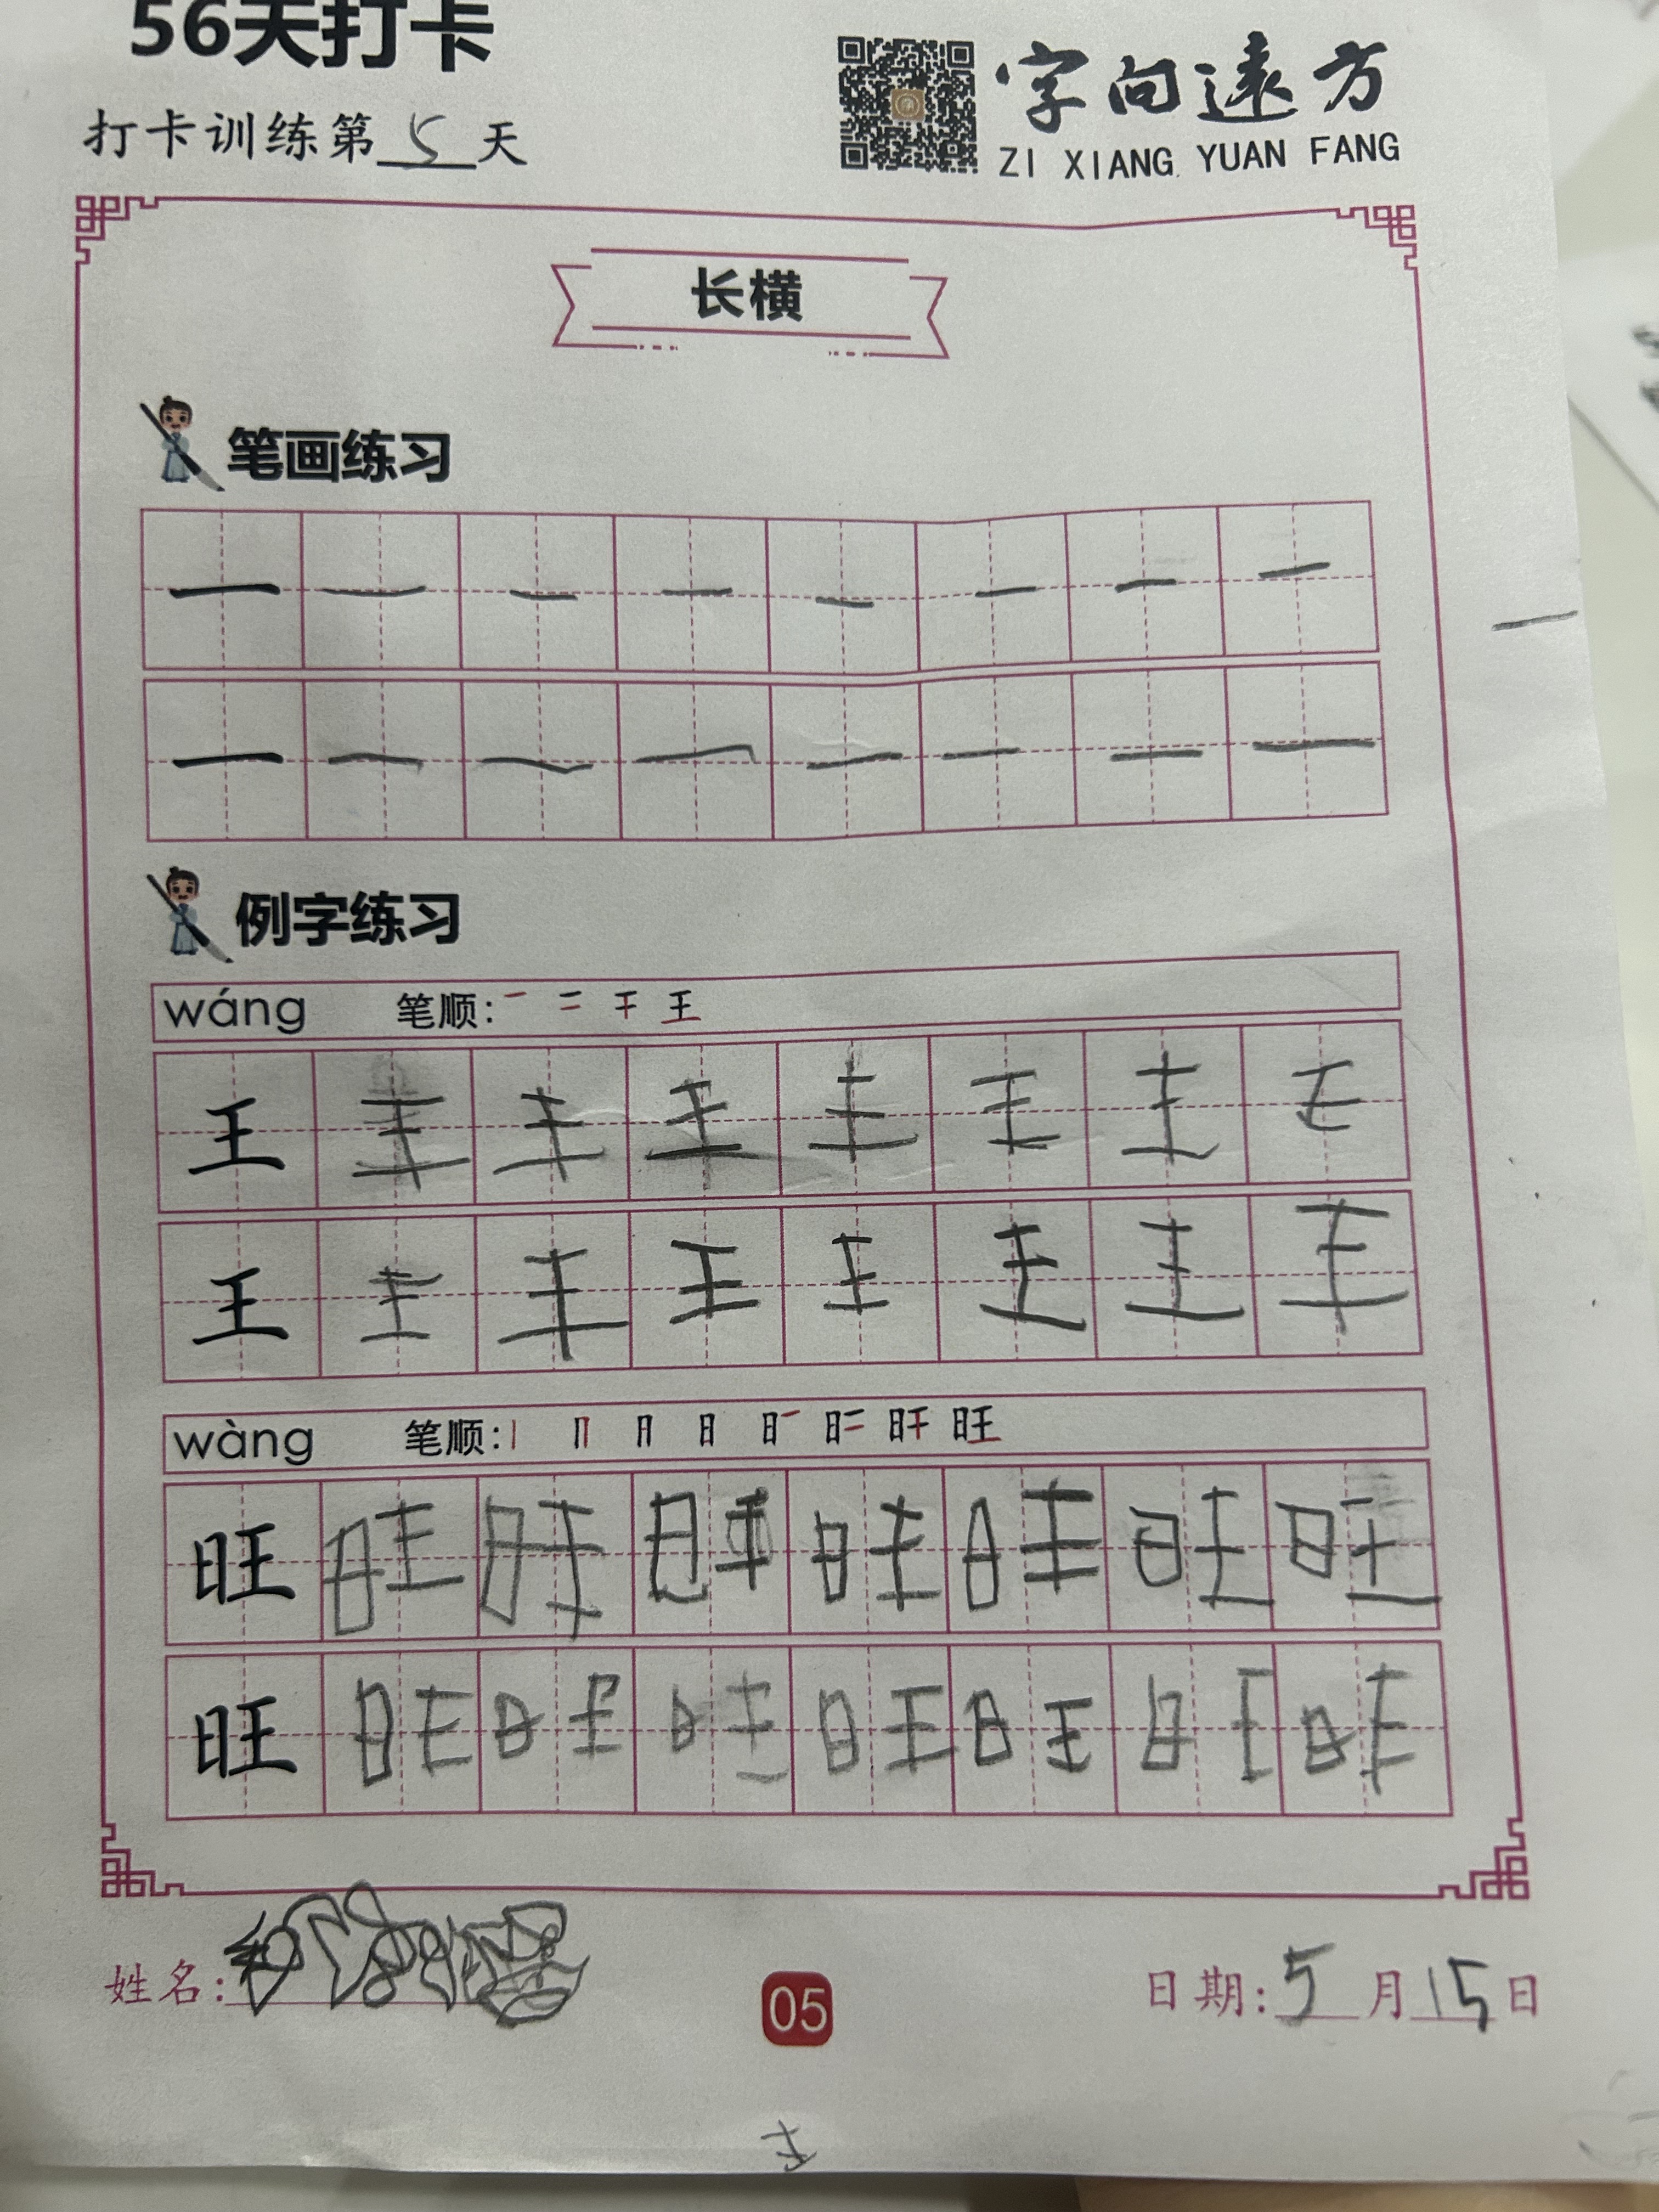 56天打卡
打卡训练第5天
字向远方
ZI XIANG YUAN FANG
长横
笔画练习
一 一 一 一 一 一 一 一
一 一 一 一 一 一 一 一
例字练习
wáng 笔顺: 一 二 干 王
王 王 王 王 王 王 王 王
王 王 王 王 王 王 王 王
wàng 笔顺: 丨 冂 月 日 旺
旺 旺 旺 旺 旺 旺 旺 旺
旺 旺 旺 旺 旺 旺 旺 旺
姓名:
05
日期: 5 月 15 日